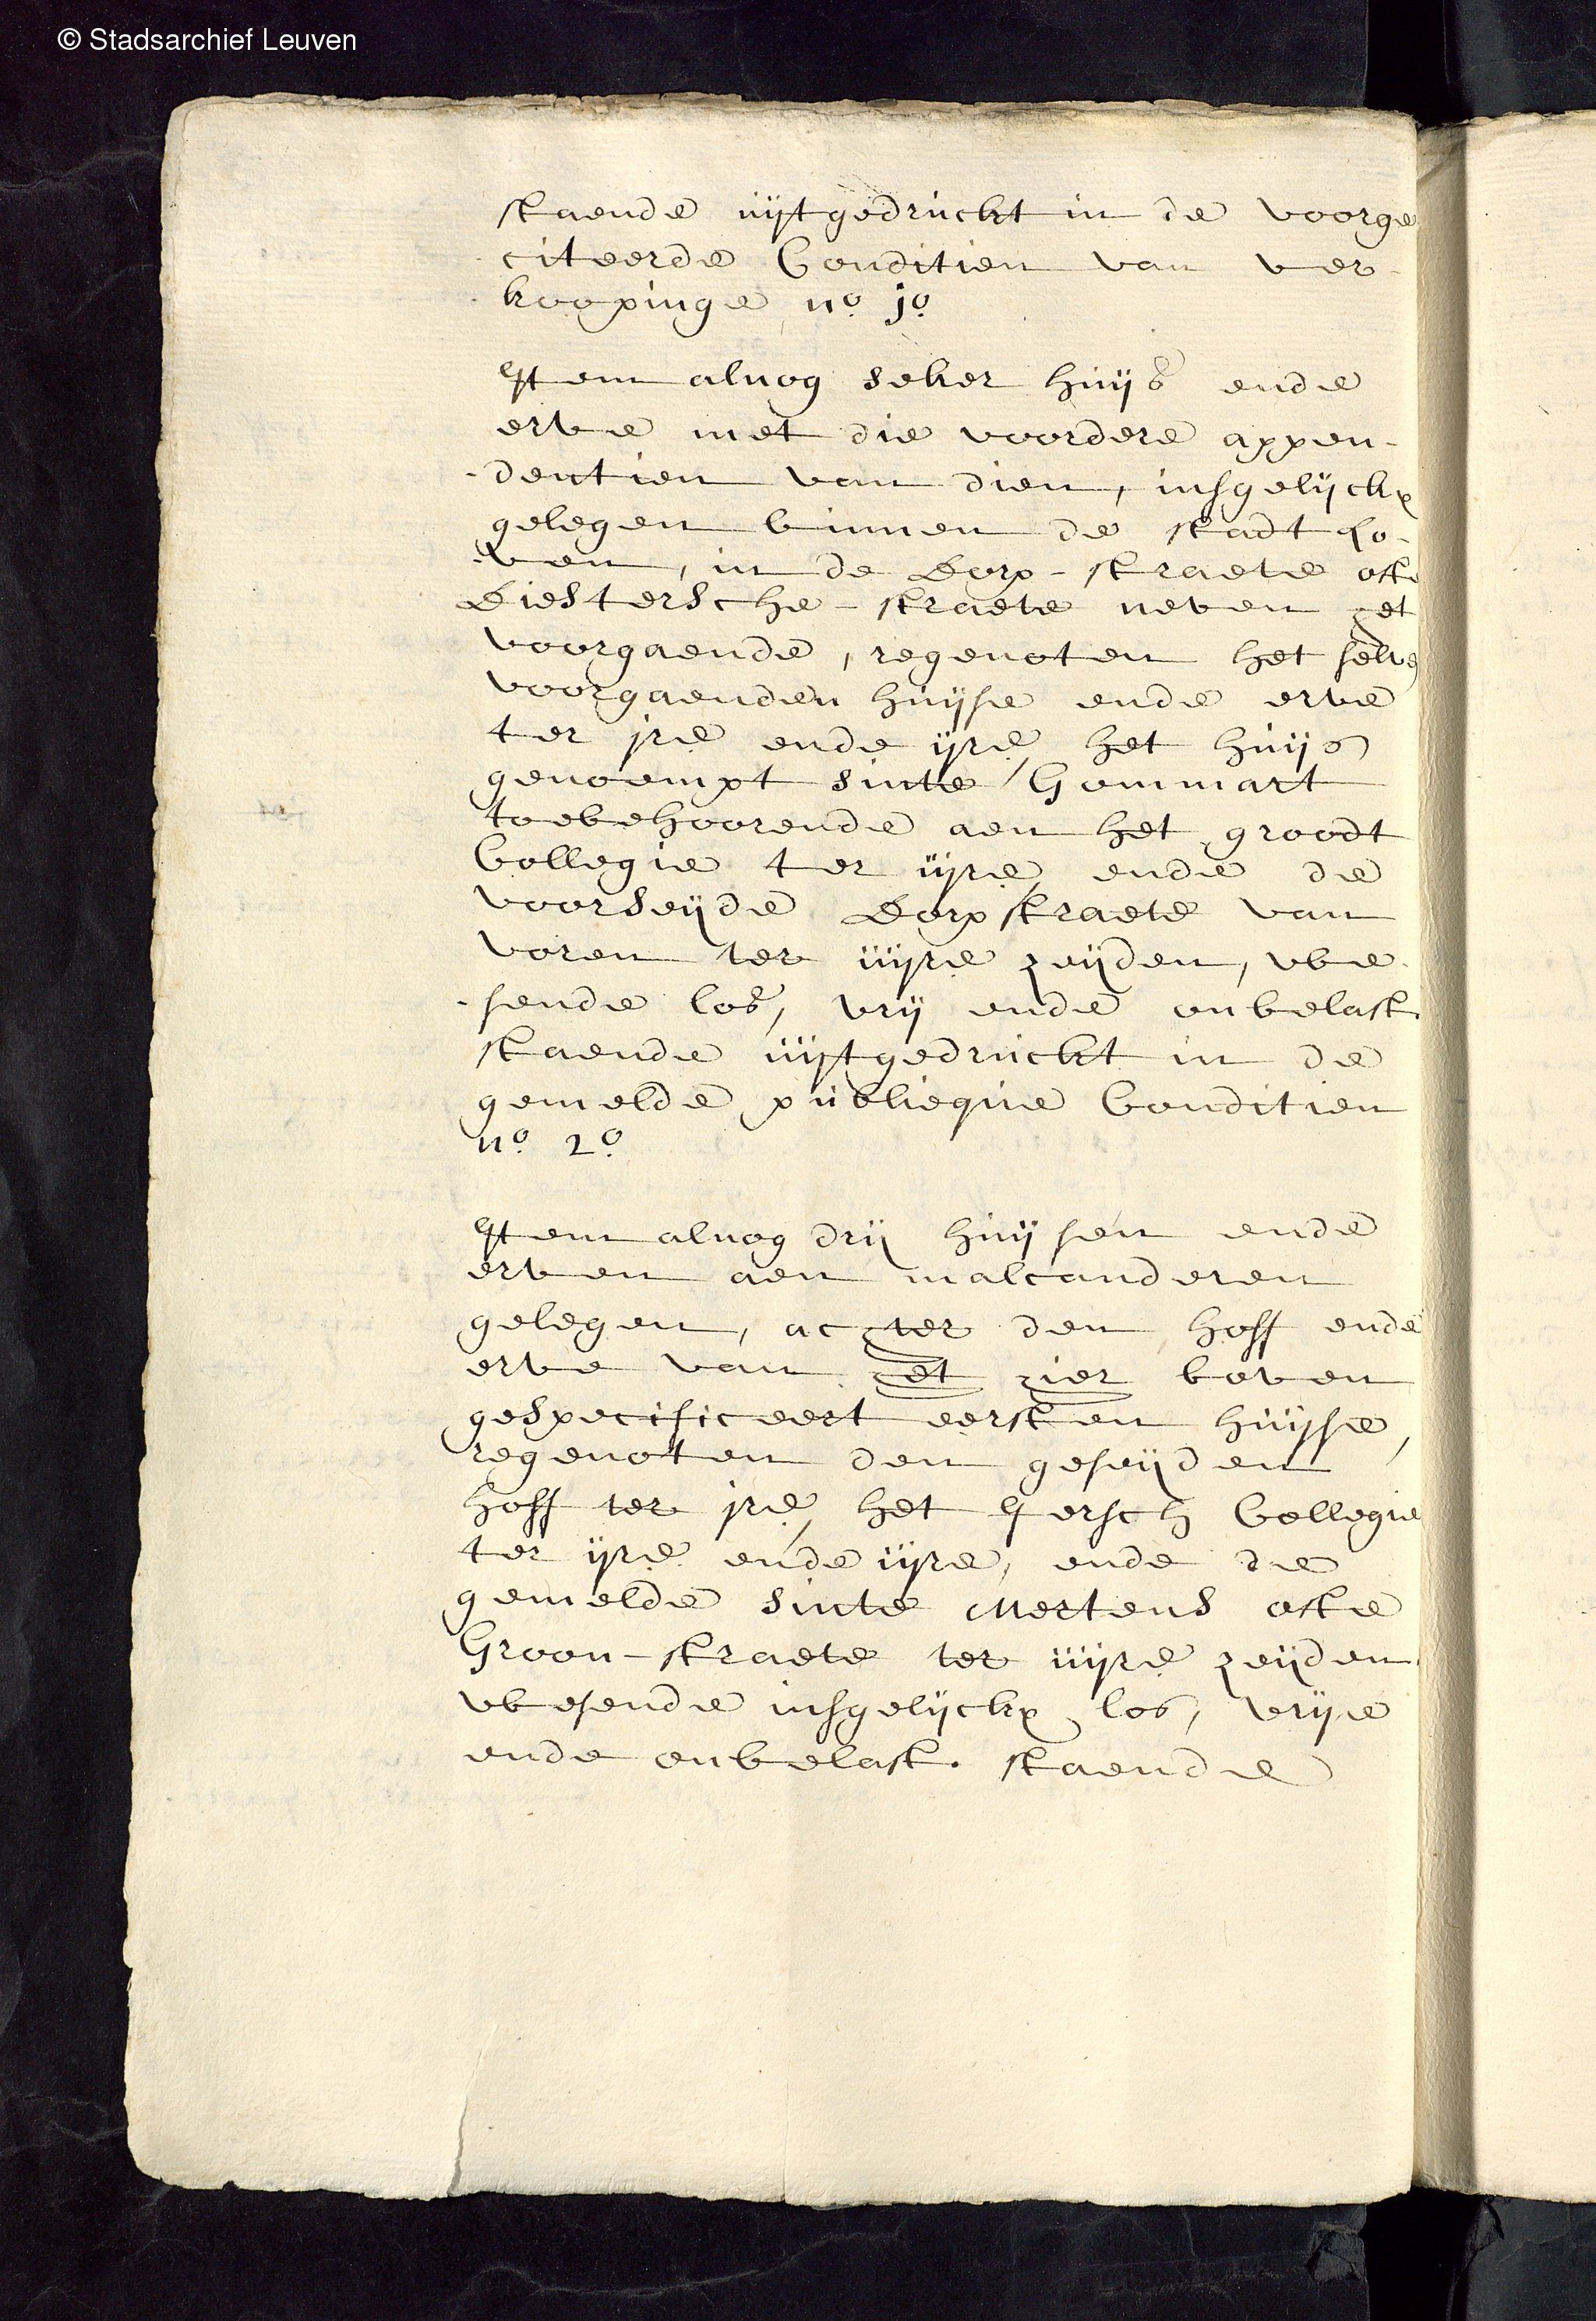 © Stadsarchief Leuven
staende uijtgedruckt in de voorge
citeerde Conditien van ver-
koopinge no. 1o.
Item alnog seker huijs ende
erve met die voordere appen-
-dentien van dien, insgelijckx
gelegen binnen de stadt Lo-
-ven, in de Dorp-straete ofte
Diestersche-straete neven het
voorgaende, regenoten het selve
voorgaenden huijse ende erve
ter jre ende ijre, het huijs
genoempt sinte Gommart
toebehoorende aen het groodt
Collegie ter iijre, ende de
voorseijde Dorpstraete van
voren ter iiijre zeijden, we-
-sende los, vrij ende onbelast
staende uijtgedruckt in de
gemelde publieque Conditien
no. 2o.
Item alnog drij huijsen ende
erven aen malcanderen
gelegen, achter den hoff ende
erve van het hier boven
gespecificeert eersten huijse,
regenoten den geseijden
hoff ter jre, het Iersch Collegie
ter ijre ende iijre, ende de
gemelde sinte Mertens ofte
Groon-straete ter iiijre zeijden
wesende insgelijckx los, vrije
ende onbelast. staende